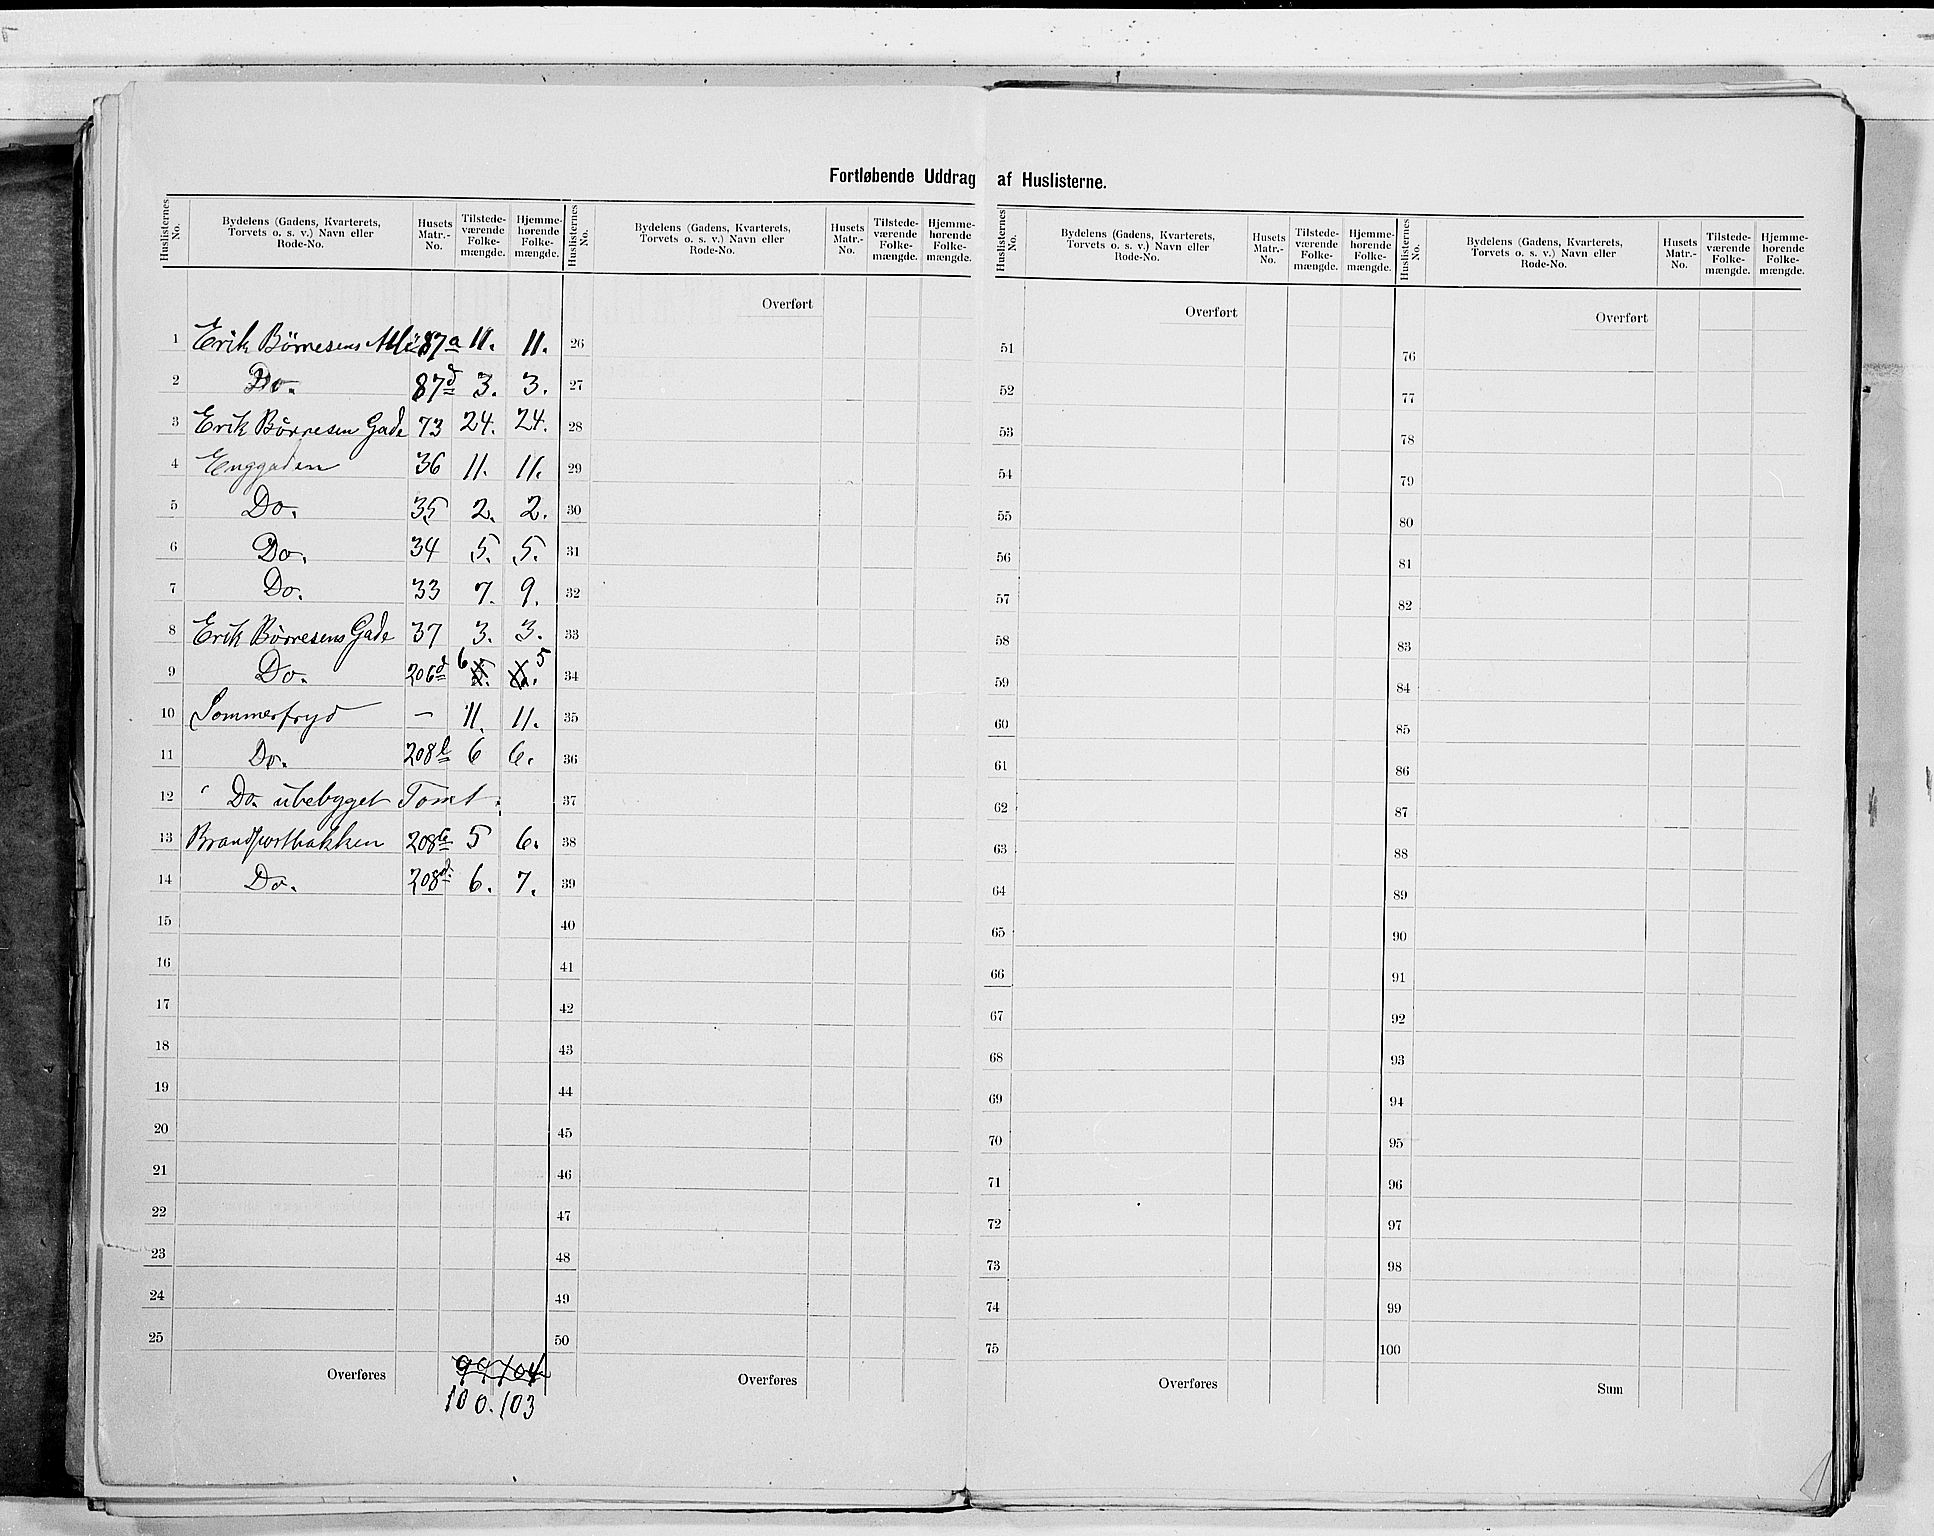 Fortløbende Uddrag af Huslisterne.
Huslisternes No. Bydelens (Gadens, Kvarterets, Torvets o. s. v.) Navn eller Rode-No. Husets Matr.-No. Tilstedeværende Folkemængde. Hjemmehørende Folkemængde.
1 Erik Börresens Allé 87a 11. 11.
2 Do. 87d 3. 3.
3 Erik Börresen Gade 73 24. 24.
4 Enggaden 36 11. 11.
5 Do. 35 2. 2.
6 Do. 34 5. 5.
7 Do. 33 7. 9.
8 Erik Börresens Gade 37 3. 3.
9 Do. 206d 6 5
10 Sommerfryd — 11. 11.
11 Do. 208b 6 6.
12 Do. ubebygget Tomt.
13 Brandpostbakken 208c 5 6.
14 Do. 208d 6. 7.
15
16
17
18
19
20
21
22
23
24
25
Overføres 99 104
100. 103
Huslisternes No. Bydelens (Gadens, Kvarterets, Torvets o. s. v.) Navn eller Rode-No. Husets Matr.-No. Tilstedeværende Folkemængde. Hjemmehørende Folkemængde.
Overført
26
27
28
29
30
31
32
33
34
35
36
37
38
39
40
41
42
43
44
45
46
47
48
49
50
Overføres
Huslisternes No. Bydelens (Gadens, Kvarterets, Torvets o. s. v.) Navn eller Rode-No. Husets Matr.-No. Tilstedeværende Folkemængde. Hjemmehørende Folkemængde.
Overført
51
52
53
54
55
56
57
58
59
60
61
62
63
64
65
66
67
68
69
70
71
72
73
74
75
Overføres
Huslisternes No. Bydelens (Gadens, Kvarterets, Torvets o. s. v.) Navn eller Rode-No. Husets Matr.-No. Tilstedeværende Folkemængde. Hjemmehørende Folkemængde.
Overført
76
77
78
79
80
81
82
83
84
85
86
87
88
89
90
91
92
93
94
95
96
97
98
99
100
Sum